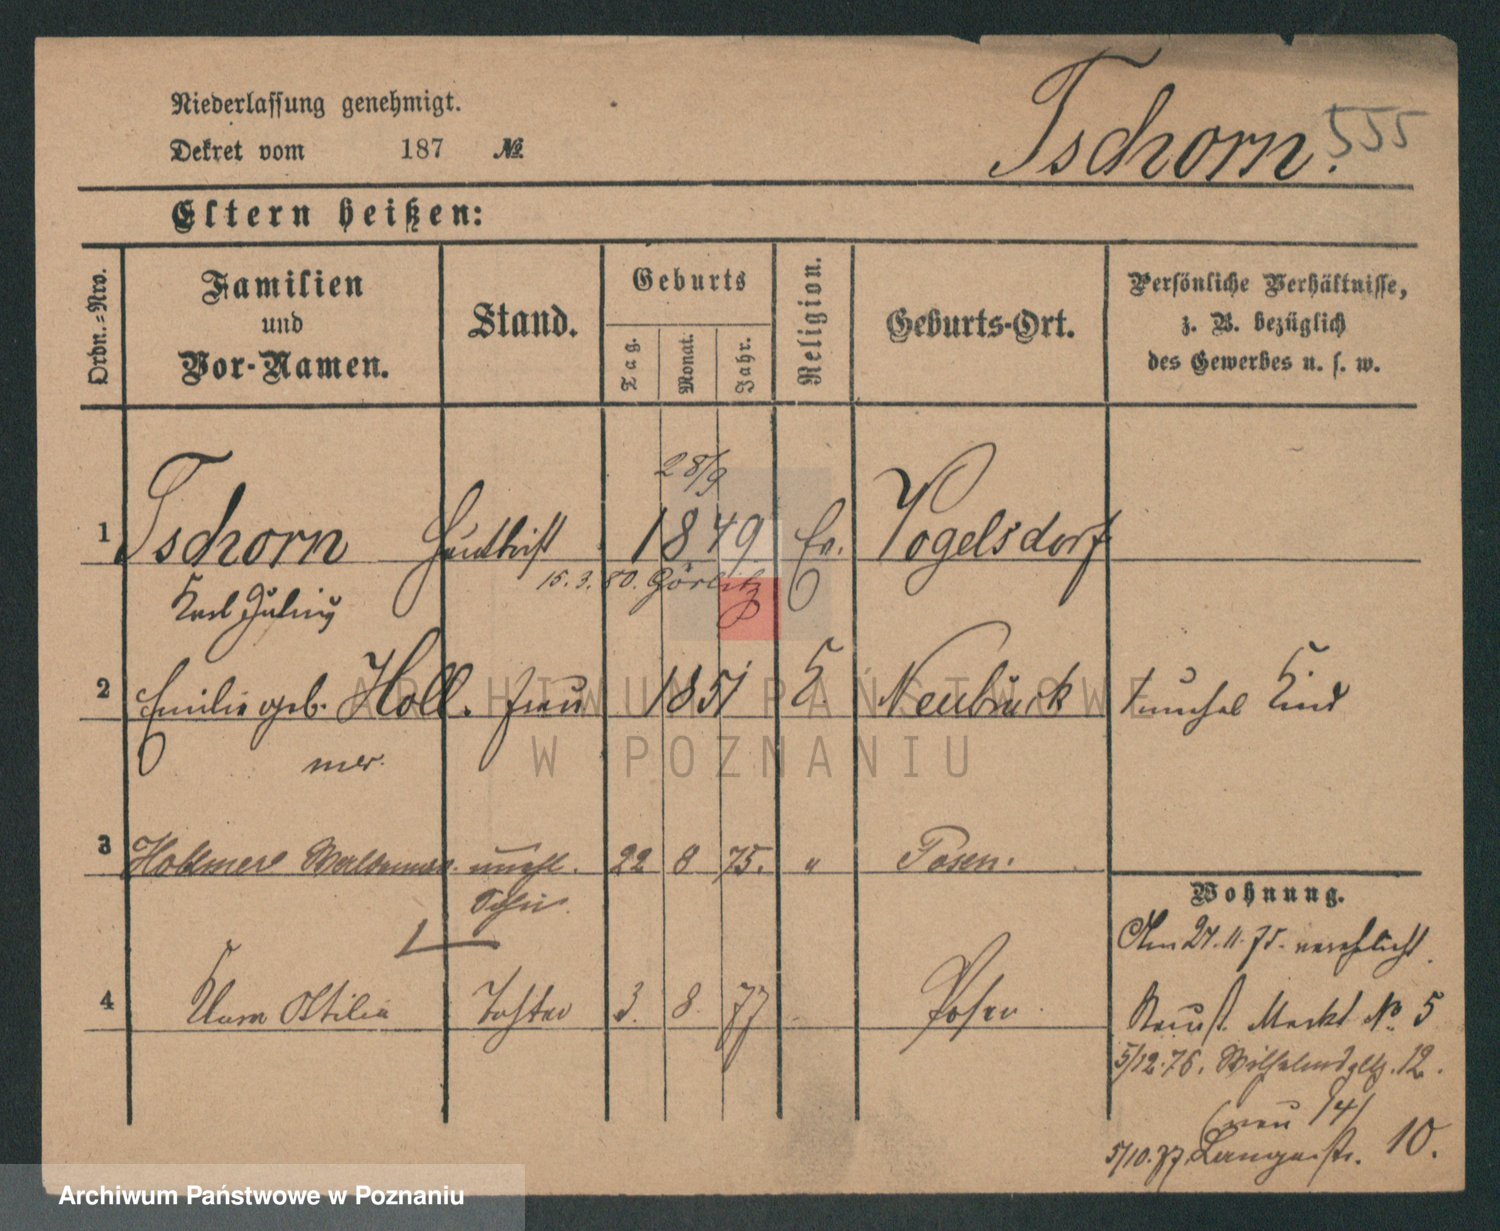 Niederlassung genehmigt.
Dekret vom 187 №
Tschorn. 555
Eltern heißen:
Ordn.-Nro.
Familien und Vor-Namen.
Stand.
Geburts
Tag.
Monat.
Jahr.
Religion.
Geburts-Ort.
Persönliche Verhältnisse,
z. B. bezüglich
des Gewerbes u. s. w.
28/9
1 Tschorn 1849 Ev. Vogelsdorf
15. 3. 80. Görlitz
Karl Julius
2 Emilie geb. Holl. Frau 1851 K Neubrück Kind
mer.
3 Hollmer Waldemar. unehl. 22 8 75. " Posen.
Sohn.
4 Klara Ottilie Tochter 3. 8. 77 Posen.
Wohnung.
Am 27. 11. 75. verehelicht.
Neust. Markt № 5
5/12. 76. Wilhelmspltz. 12.
(neu 14)
5/10. 77 Langestr. 10.
ARCHIWUM PAŃSTWOWE
W POZNANIU
Archiwum Państwowe w Poznaniu